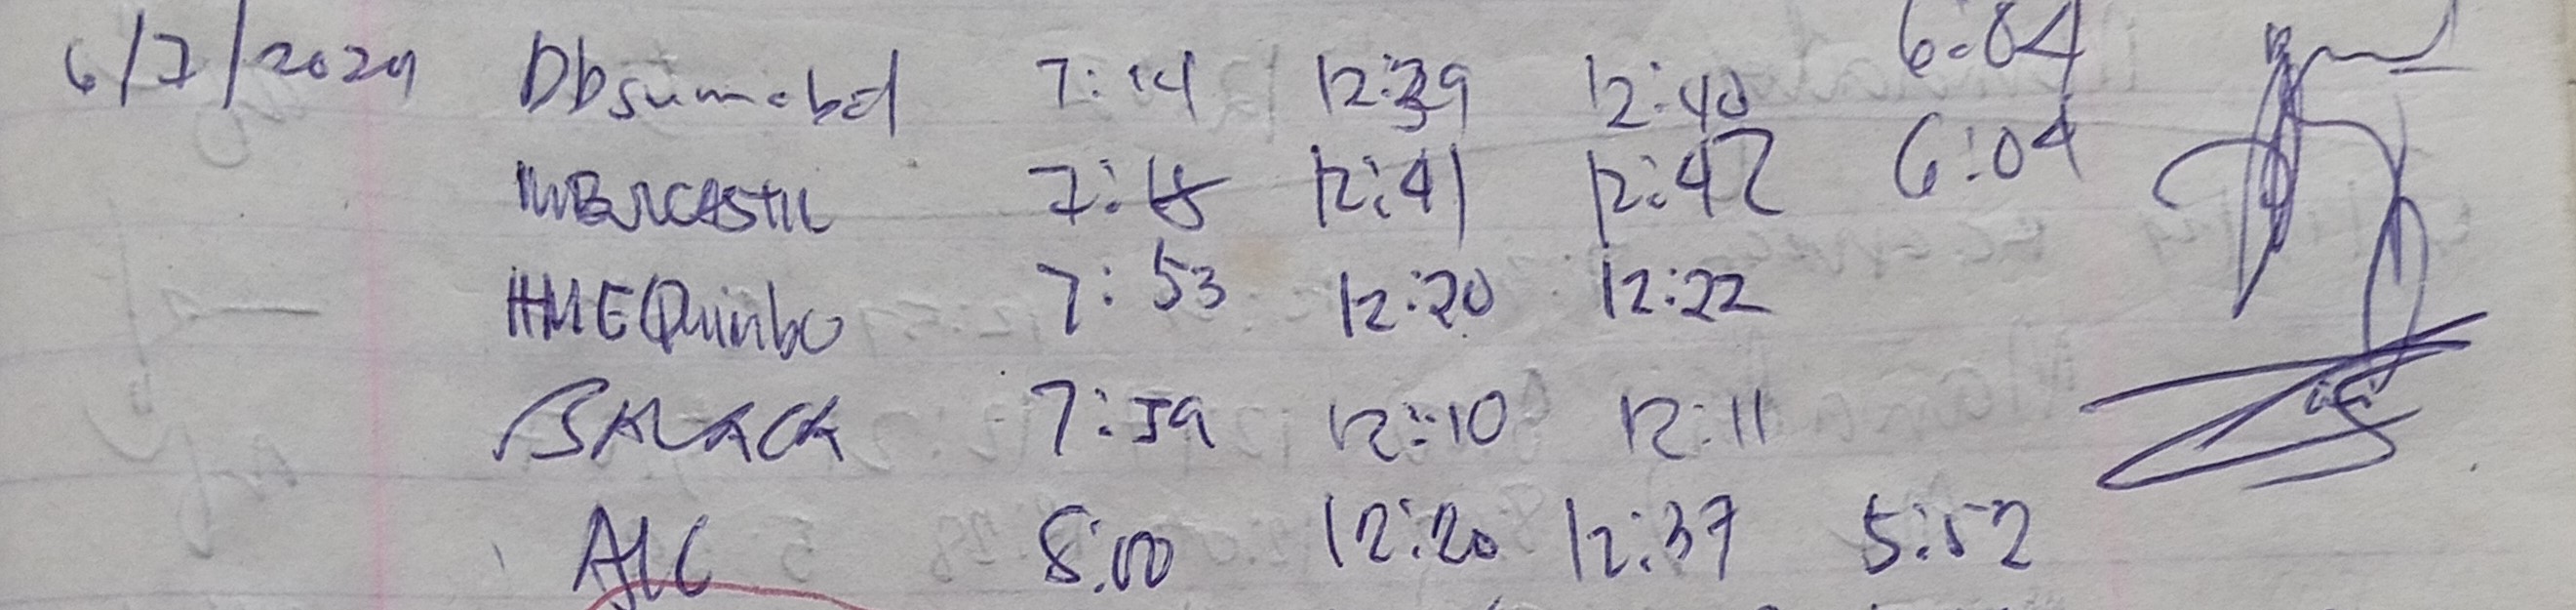 6/7/2024 Dbsumabal 7:14 12:39 12:40 6:04
7:15 12:41 12:42 6:04
HMEQuimbo 7:53 12:20 12:22
7:59 12:10 12:11
AJC 8:00 12:20 12:37 5:52